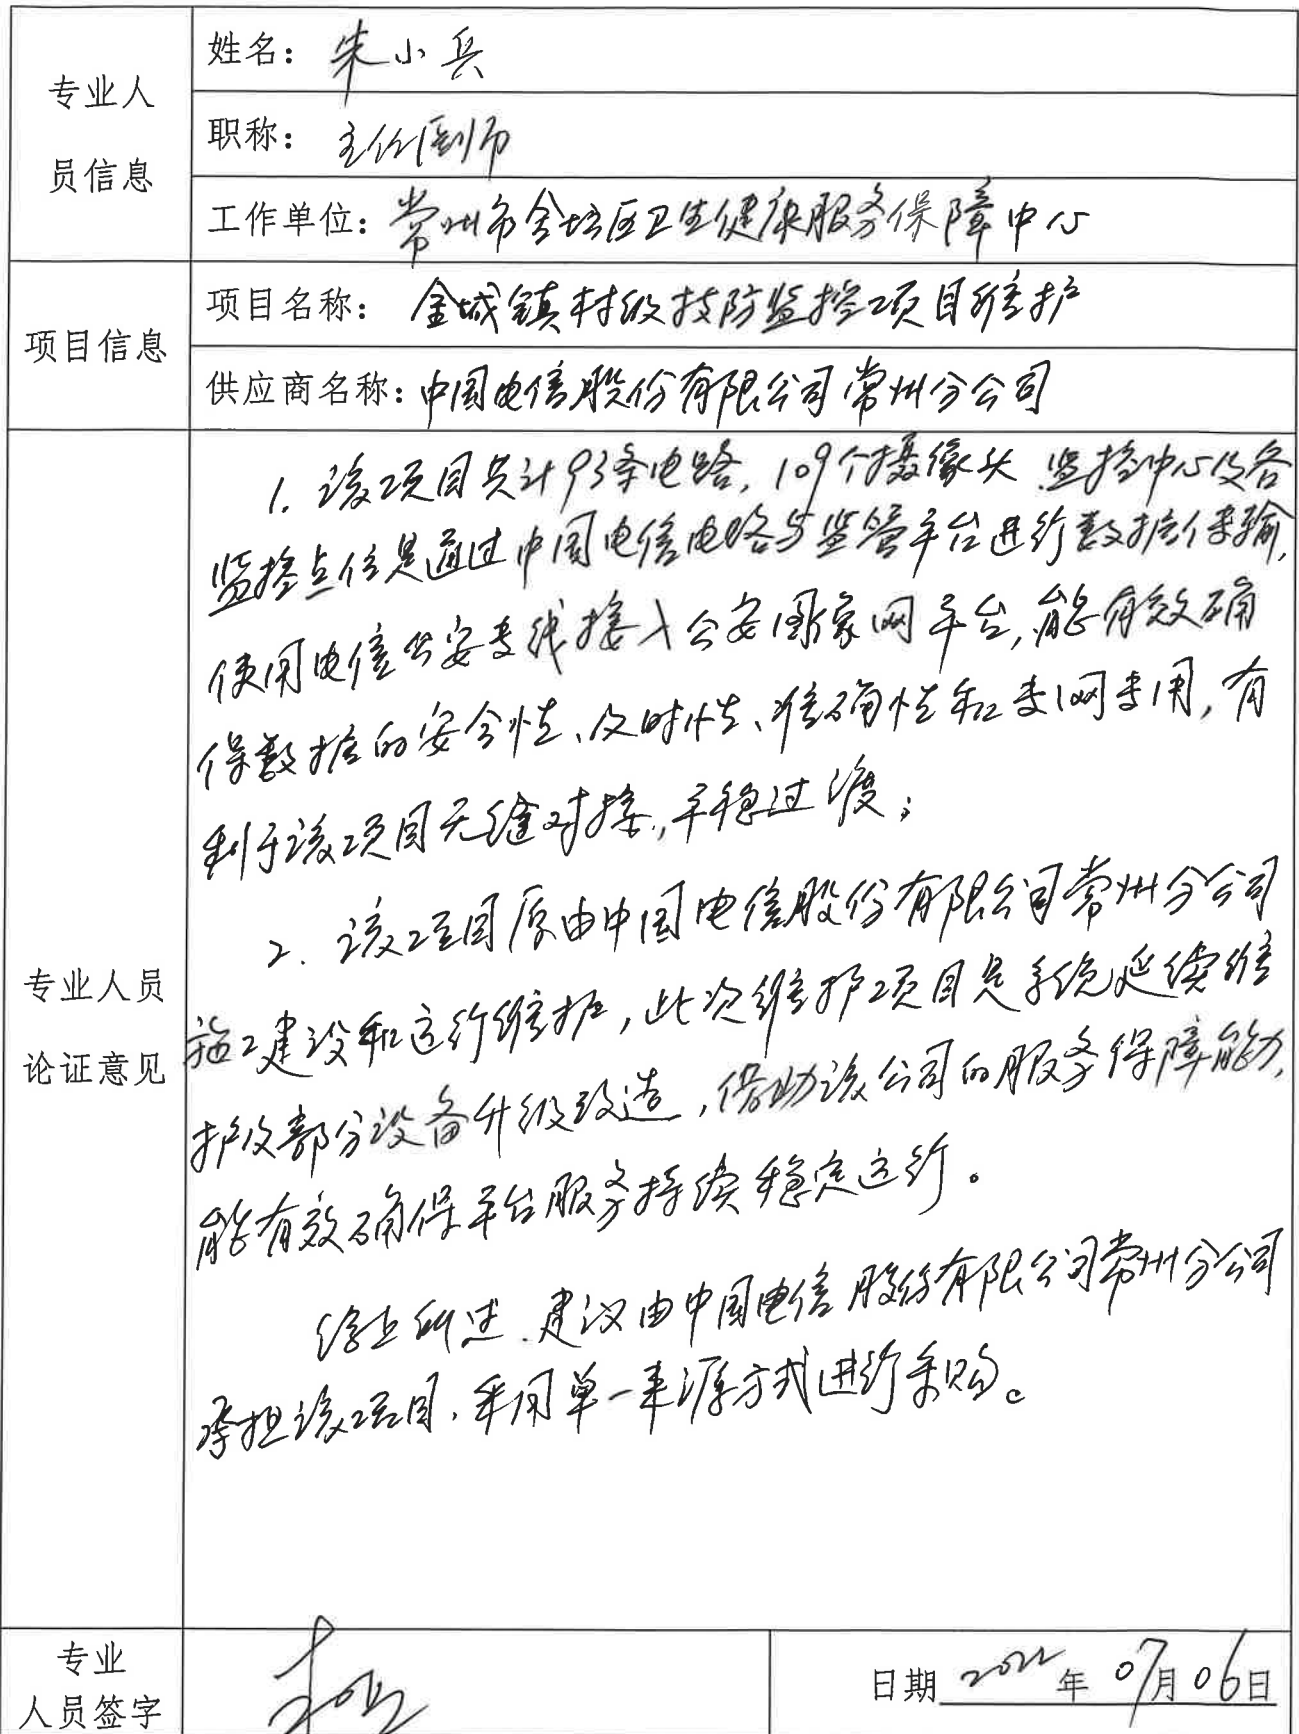 专业人
员信息
姓名：朱小兵
职称：主任
工作单位：常州市金坛区卫生健康服务保障中心
项目信息
项目名称：金城镇村级技防监控项目维护
供应商名称：中国电信股份有限公司常州分公司
专业人员
论证意见
1. 该项目共计93条电路，109个摄像头，监控中心及各
监控点位是通过中国电信电路与监管平台进行数据传输，
使用电信公安专线接入公安图象网平台，能有效确
保数据的安全性、及时性、准确性和专网专用，有
利于该项目无缝对接，平稳过渡；
2. 该项目原由中国电信股份有限公司常州分公司
施工建设和运行维护，此次维护项目是系统延续维
护及部分设备升级改造，借助该公司的服务保障能力，
能有效确保平台服务持续稳定运行。
综上所述，建议由中国电信股份有限公司常州分公司
承担该项目，采用单一来源方式进行采购。
专业
人员签字
日期 2022年07月06日